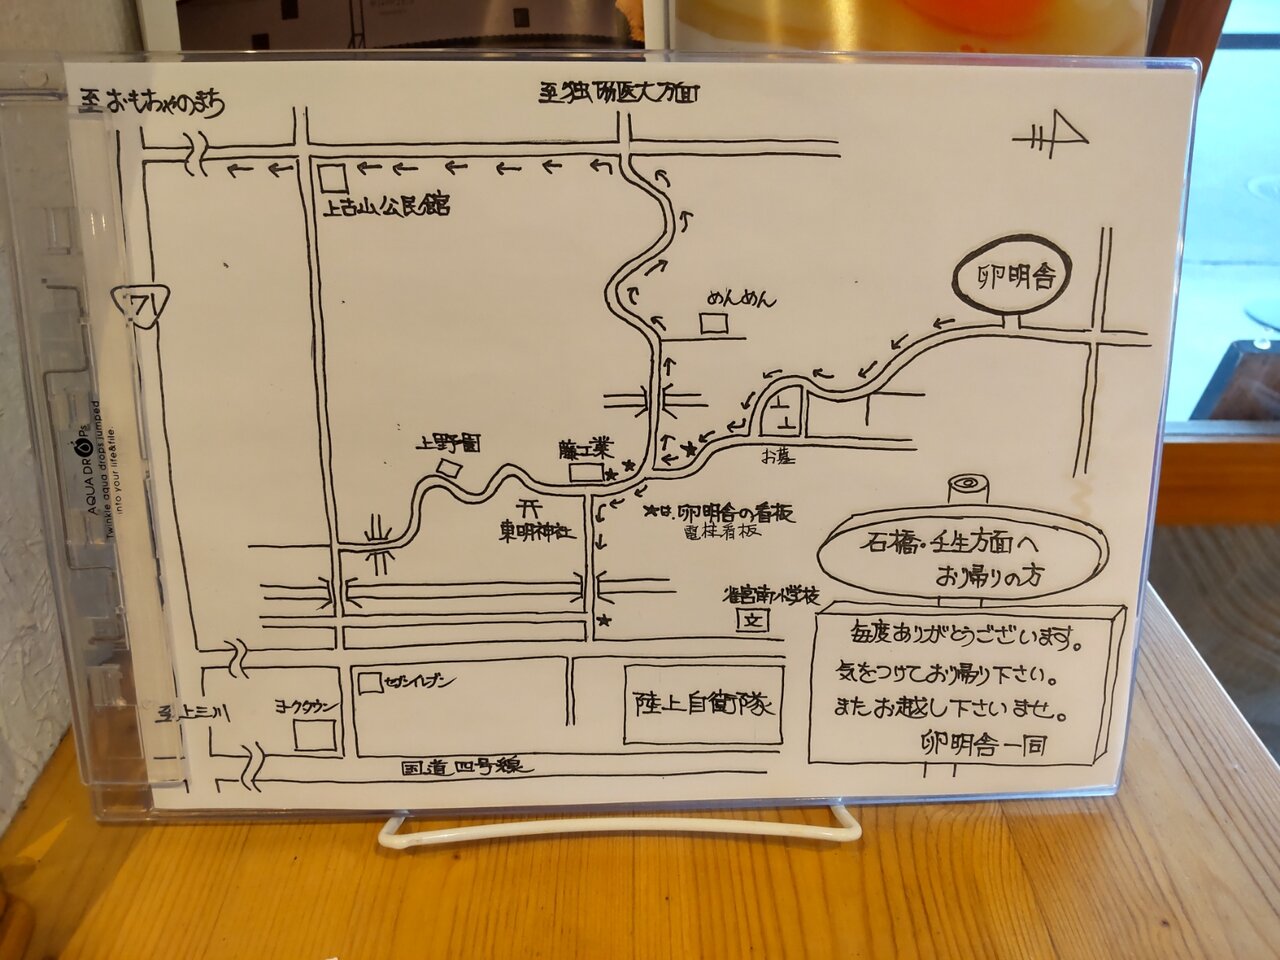 至おもちゃのまち
至独協医大方面
上古山公民館
卵明舎
めんめん
71
上野園
藤工業
お墓
東明神社
★は、卵明舎の看板
電柱看板
石橋・壬生方面へ
お帰りの方
雀宮南小学校
文
毎度ありがとうございます。
気をつけてお帰り下さい。
またお越し下さいませ。
卵明舎一同
セブンイレブン
陸上自衛隊
至上三川
ヨークタウン
国道四号線
AQUA DROPs
Twinkle aqua drops jumped
into your life&file.